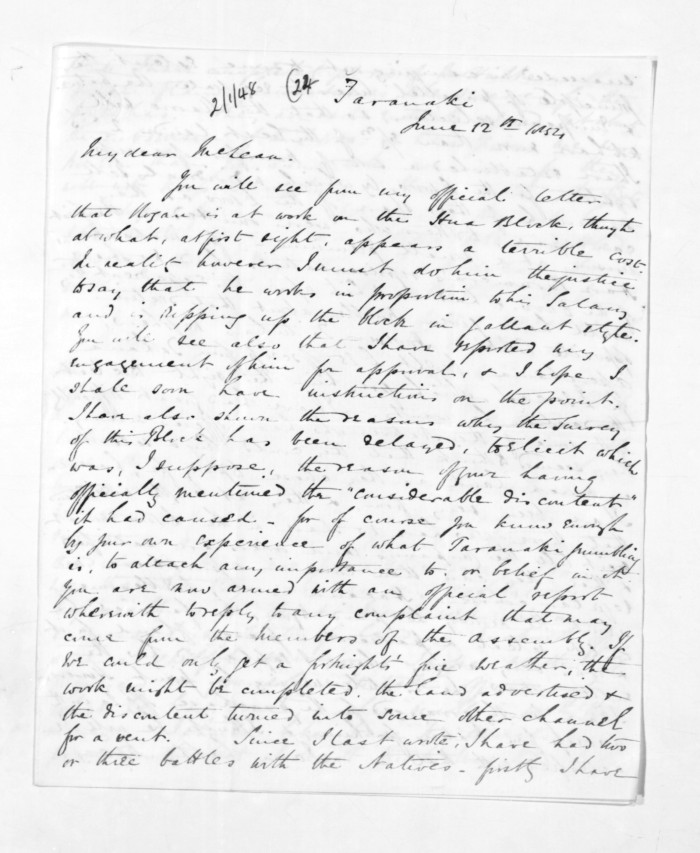 2/1/48 (24
Taranaki
June 12th 1854
My dear McLean.
You will see from my official letter
that Rogan is at work on the Hua Block, though
at what, at first sight, appears a terrible cost.
In reality however I must do him the justice
to say that he works in proportion to his Salary
and is ripping up the block in gallant style.
You will see also that I have reported my
engagement of him for approval, & I hope I
shall soon have instructions on the point.
I have also shown the reasons why the Survey
of this Block has been delayed, to elicit which
was, I suppose, the reason of your having
officially mentioned the "considerable discontent"
it had caused - for of course you know enough
by your own experience of what Taranaki grumbling
is, to attach any importance to or belief in it
You are now armed with an official report
wherewith to reply to any complaint that may
come from the members of the Assembly. If
we could only get a fortnight's fine weather, the
work might be completed, the land advertised &
the discontent turned into some other channel
for a vent. Since I last wrote, I have had two
or three battles with the Natives - firstly I have